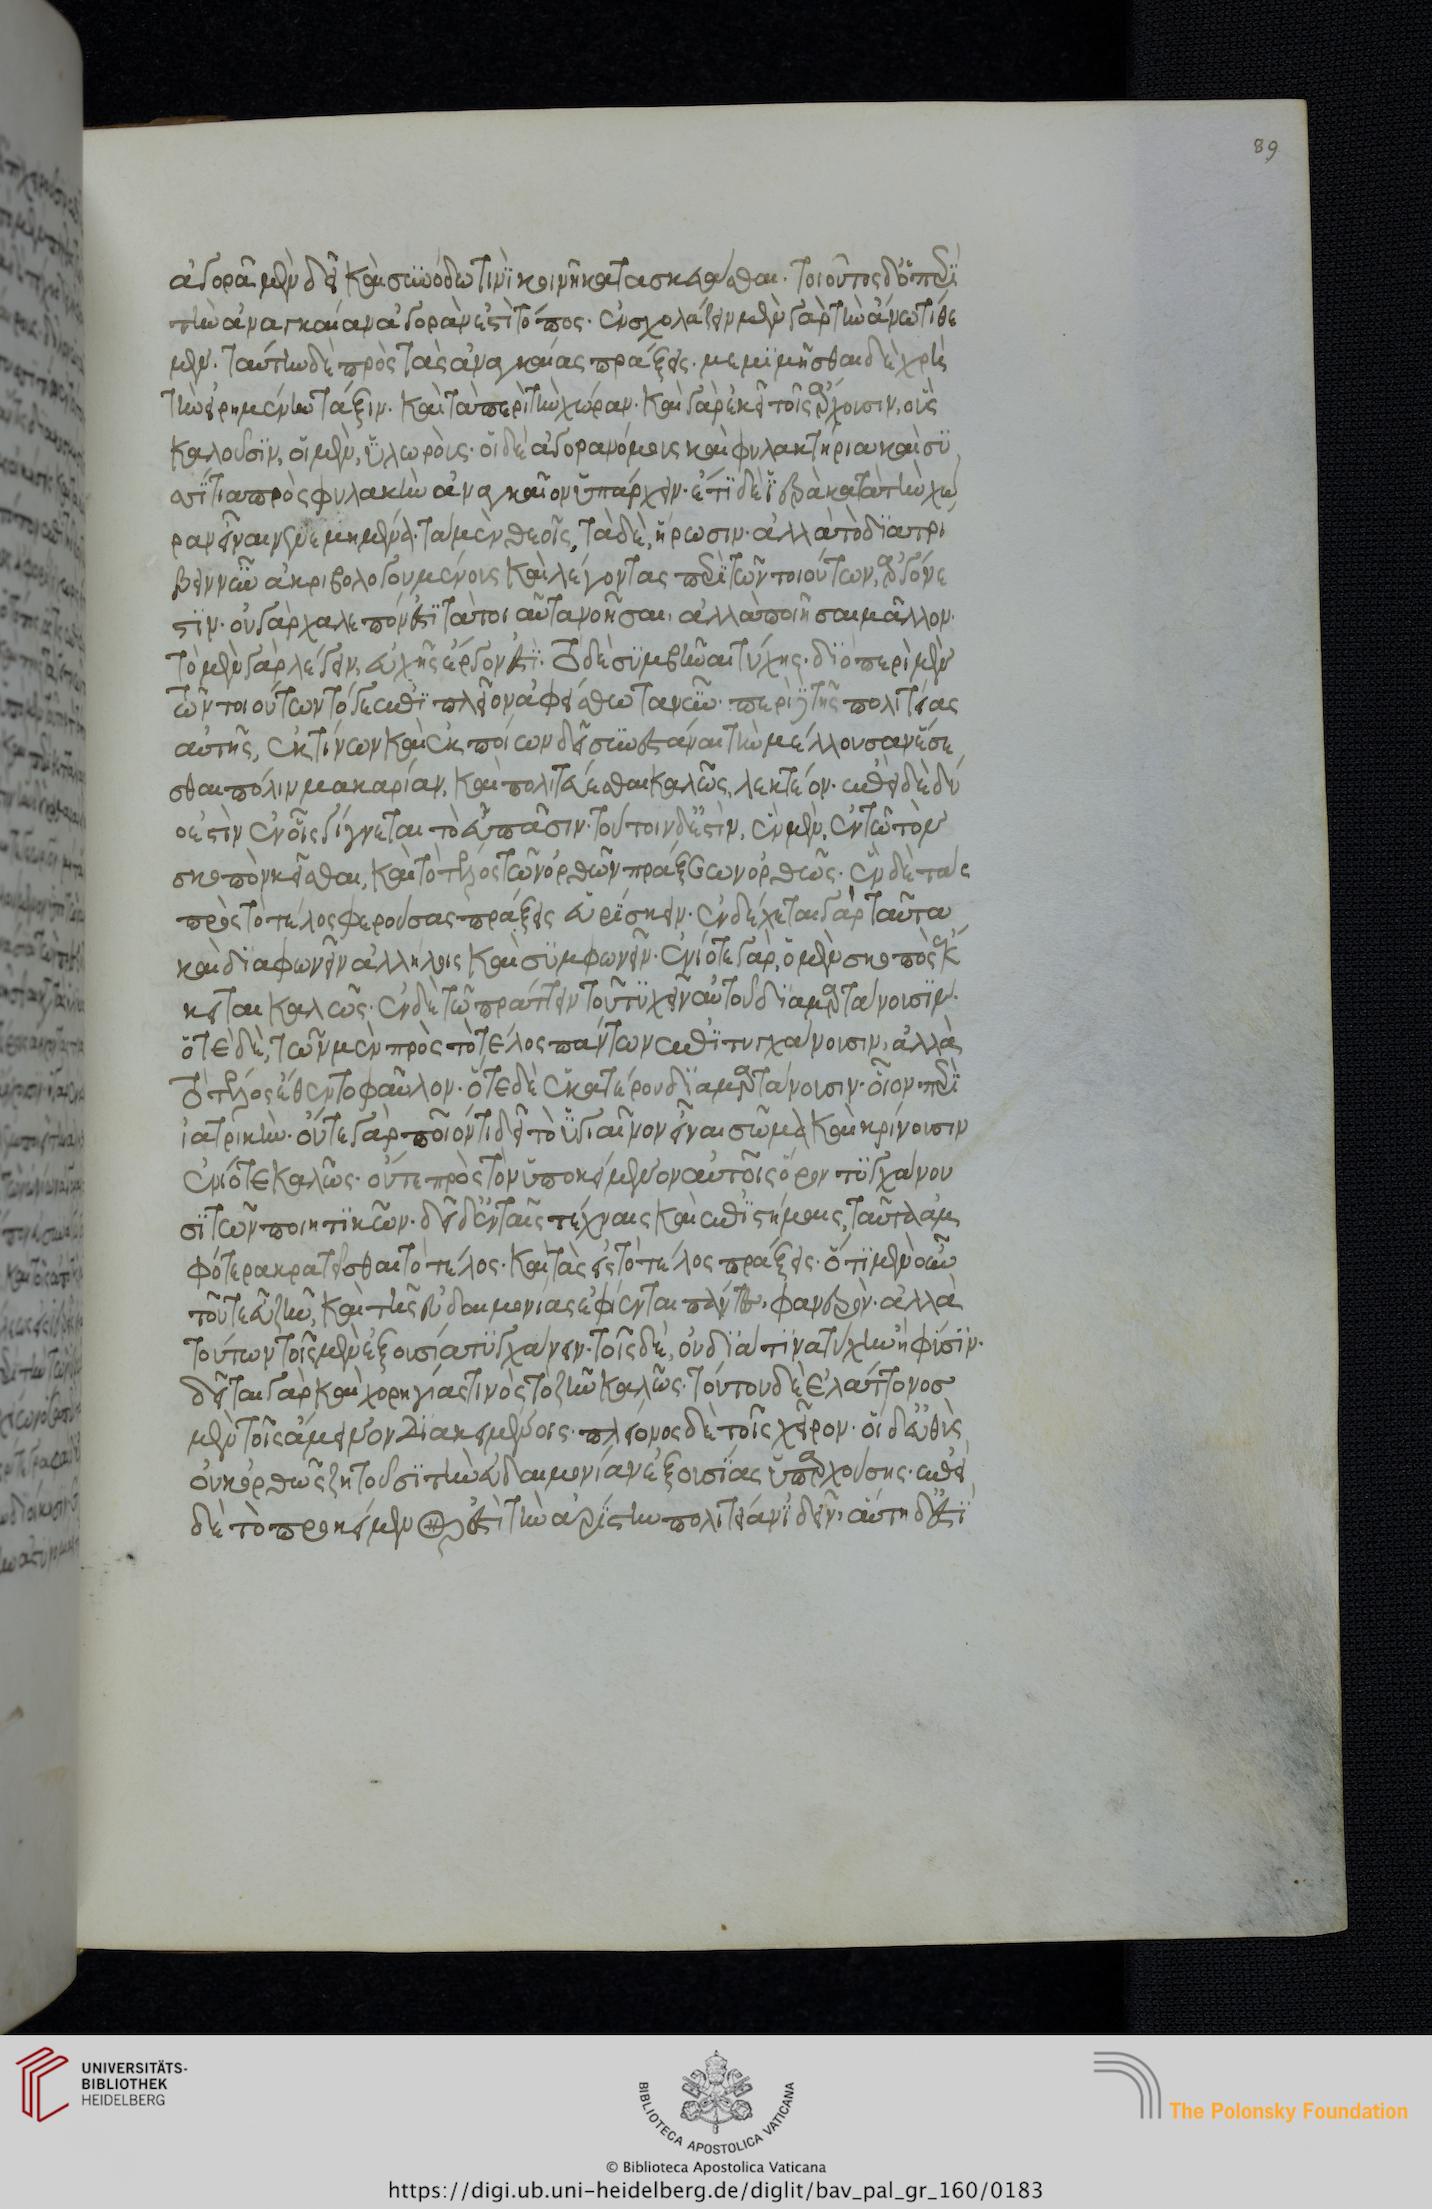 89
ἀγορᾷ μὲν δεῖ καὶ συνόδω τινὶ κοινῇ κατασκευάσθαι. τοιοῦτος δ' ὁ περὶ
τὴν ἀναγκαίαν ἀγορὰν ἐστὶ τόπος. ἐνσχολάζειν μὲν γὰρ τὴν ἄνω τίθε
μεν. ταύτην δὲ πρὸς τὰς ἀναγκαίας πράξεις. μεμιμῆσθαι δὲ χρὴ
τὴν εἰρημένην τάξιν. καὶ τὰ περὶ τὴν χώραν. καὶ γὰρ ἐκεῖ τοῖς ἄρχουσιν, οὓς
καλοῦσιν, οἱ μὲν, ὑλωροὺς. οἱ δὲ ἀγορανόμοις καὶ φυλακτήρια καὶ συ
σίτια πρὸς φυλακὴν ἀναγκαῖον ὑπάρχειν. ἔτι δὲ ἱερὰ κατὰ τὴν χώ
ραν εἶναι νενεμημένα. τὰ μὲν θεοῖς, τὰ δὲ, ἥρωσιν. ἀλλὰ τὸ διατρί
βειν νῦν ἀκριβολογουμένους καὶ λέγοντας περὶ τῶν τοιούτων, ἀργόν ἐ
στιν. οὐ γὰρ χαλεπόν ἐστι τὰ τοιαῦτα νοῆσαι, ἀλλὰ ποιῆσαι μᾶλλον.
τὸ μὲν γὰρ λέγειν, εὐχῆς ἔργον ἐστὶ. τὸ δὲ συμβῆναι τύχης. διὸ περὶ μὲν
τῶν τοιούτων τό γε ἐπὶ πλεῖον ἀφείσθω τανῦν. περὶ δὲ τῆς πολιτείας
αὐτῆς, ἐκ τίνων καὶ ἐκ ποίων δεῖ συνεστάναι τὴν μέλλουσαν ἔσε
σθαι πόλιν μακαρίαν, καὶ πολιτεύεσθαι καλῶς, λεκτέον. ἐπεὶ δὲ δύ
ο ἐστὶν ἐν οἷς γίγνεται τὸ εὖ πᾶσιν. τούτοιν δ' ἐστὶν, ἓν μὲν, ἐν τῶ τὸν
σκοπὸν κεῖσθαι, καὶ τὸ τέλος τῶν ὀρθῶν πράξεων ὀρθῶς. ἓν δὲ τὰς
πρὸς τὸ τέλος φερούσας πράξεις εὑρίσκειν. ἐνδέχεται γὰρ ταῦτα
καὶ διαφωνεῖν ἀλλήλοις καὶ συμφωνεῖν. ἐνίοτε γὰρ, ὁ μὲν σκοπὸς ἔκ
κειται καλῶς. ἐν δὲ τῶ πράττειν τοῦ τυχεῖν αὐτοῦ διαμαρτάνουσιν.
ὁτὲ δὲ, τῶν μὲν πρὸς τὸ τέλος πάντων ἐπιτυγχάνουσιν, ἀλλὰ
τὸ τέλος ἔθεντο φαῦλον. ὁτὲ δὲ ἑκατέρου διαμαρτάνουσιν. οἷον περὶ
ἰατρικὴν. οὔτε γὰρ ποῖόν τι δεῖ τὸ ὑγιαῖνον εἶναι σῶμα καὶ κρίνουσιν
ἐνίοτε καλῶς. οὔτε πρὸς τὸν ὑποκείμενον αὐτοῖς ὅρον τυγχάνου
σι τῶν ποιητικῶν. δεῖ δ' ἐν ταῖς τέχναις καὶ ἐπιστήμαις, ταῦτα ἀμ
φότερα κρατεῖσθαι τὸ τέλος. καὶ τὰς εἰς τὸ τέλος πράξεις. ὅτι μὲν οὖν
τοῦ τε εὖ ζῆν, καὶ τῆς εὐδαιμονίας ἐφίενται πάντες, φανερὸν. ἀλλὰ
τούτων τοῖς μὲν ἐξουσία τυγχάνειν. τοῖς δὲ, οὐ διά τινα τύχην ἢ φύσιν.
δεῖται γὰρ καὶ χορηγίας τινὸς τὸ ζῆν καλῶς. τούτου δὲ ἐλάττονος
μὲν τοῖς ἄμεινον διακειμένοις. πλείονος δὲ τοῖς χεῖρον. οἱ δ' εὐθὺς
οὐκ ὀρθῶς ζητοῦσι τὴν εὐδαιμονίαν ἐξουσίας ὑπαρχούσης. ἐπεὶ
δὲ τὸ προκείμενον ἐστὶ τὴν ἀρίστην πολιτείαν ἰδεῖν, αὕτη δ' ἐστὶ
UNIVERSITÄTS-
BIBLIOTHEK
HEIDELBERG
BIBLIOTECA APOSTOLICA VATICANA
The Polonsky Foundation
© Biblioteca Apostolica Vaticana
https://digi.ub.uni-heidelberg.de/diglit/bav_pal_gr_160/0183